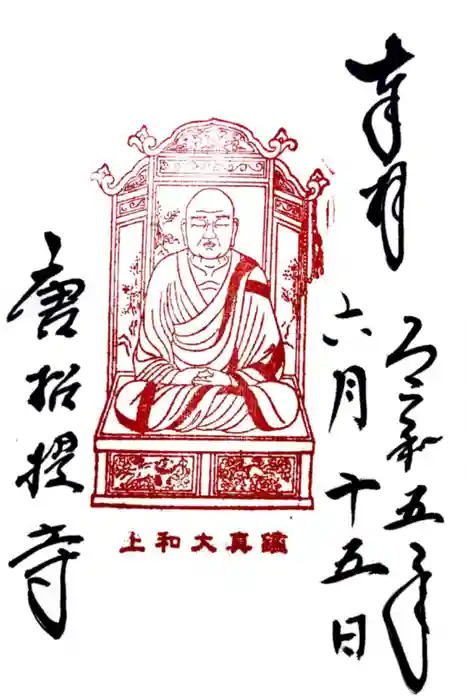 奉拝
令和五年
六月十五日
鑑真大和上
唐招提寺